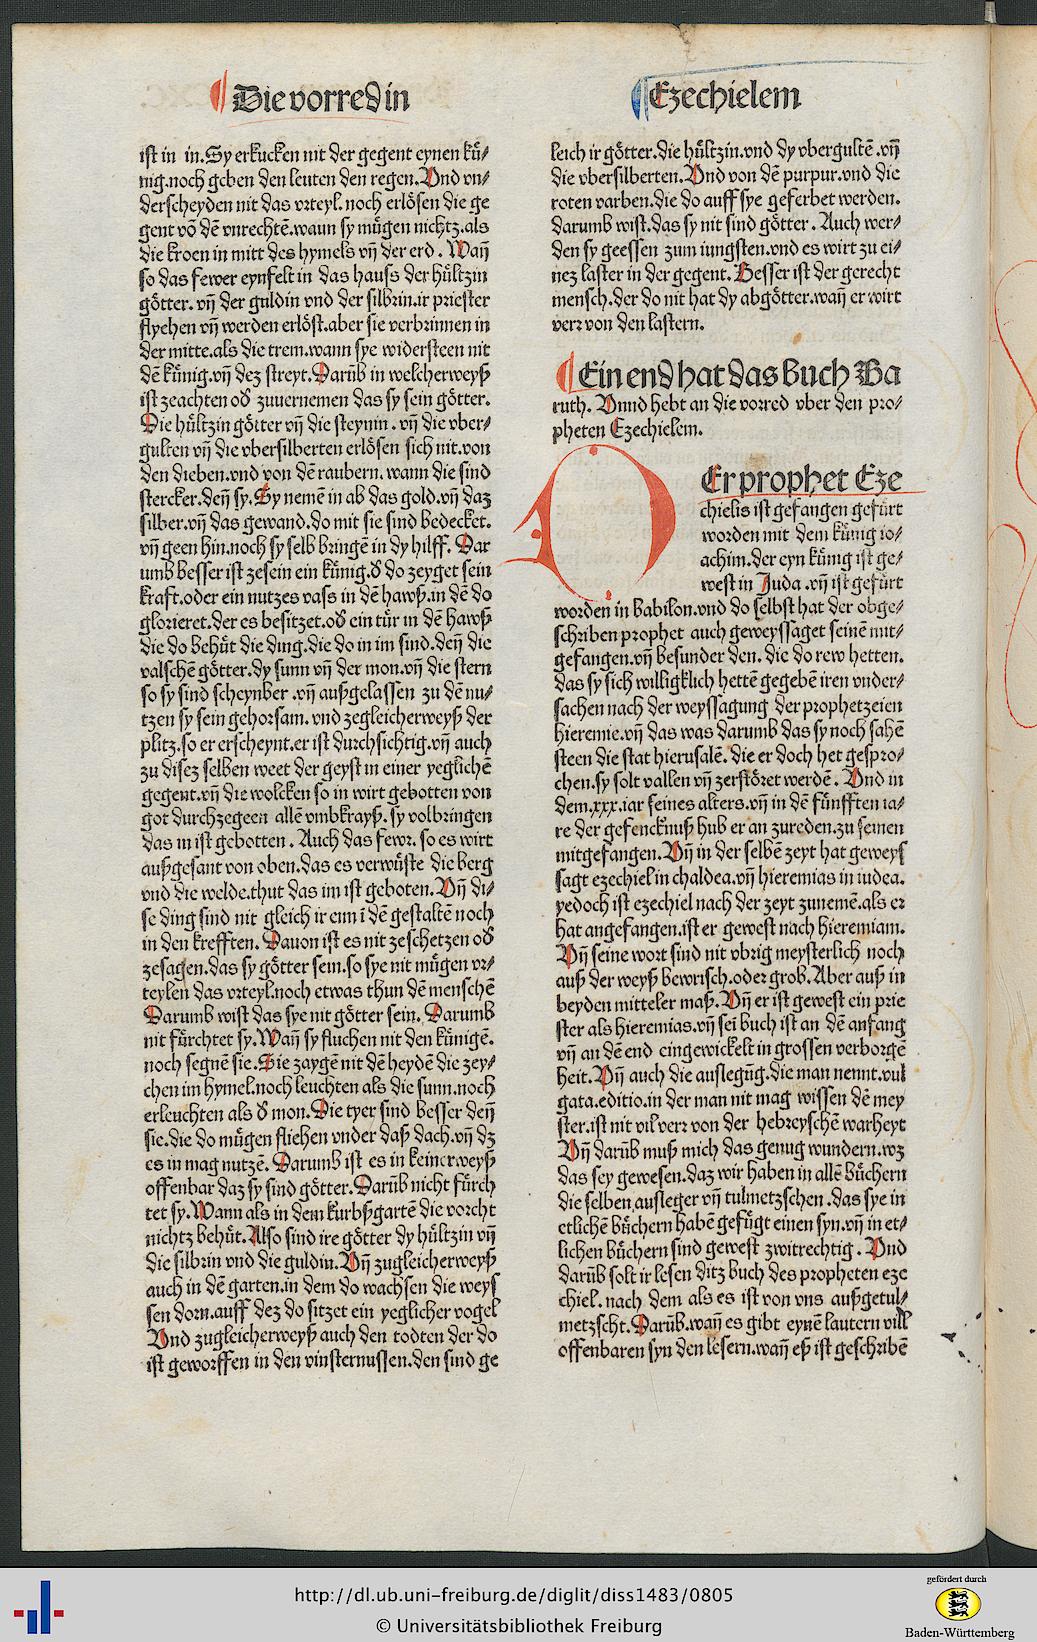 Die vorred in
Ezechielem
ist in in. Sy erkucken nit der gegent eynen kü⸗
nig. noch geben den leuten den regen. Vnd vn⸗
derscheyden nit das vrteyl. noch erlösen die ge
gent võ dẽ vnrechtẽ. wann sy mügen nichtz. als
die kroen in mitt des hymels vñ der erd. Wañ
so das fewer eynfelt in das hauss der hültzin
götter. vñ der guldin vnd der silbrin. ir priester
flyehen vñ werden erlöst. aber sie verbrinnen in
der mitte. als die trem. wann sye widersteen nit
dẽ künig. vñ dez streyt. Darũb in welcherweyß
ist zeachten oď zuuernemen das sy sein götter.
Die hültzin götter vñ die steynin. vñ die vber⸗
gulten vñ die vbersilberten erlösen sich nit. von
den dieben. vnd von dẽ raubern. wann die sind
stercker. deñ sy. Sy nemẽ in ab das gold. vñ daz
silber. vñ das gewand. do mit sie sind bedecket.
vñ geen hin. noch sy selb bringẽ in dy hilff. Dar
umb besser ist zesein ein künig. ď do zeyget sein
kraft. oder ein nutzes vass in dẽ hawß. in dẽ do
glorieret. der es besitzet. oď ein tür in dẽ hawß
die do behüt die ding. die do in im sind. deñ die
valschẽ götter. dy sunn vñ der mon. vñ die stern
so sy sind scheynber. vñ außgelassen zu dẽ nu⸗
tzen sy sein gehorsam. vnd zegleicherweyß der
plitz. so er erscheynt. er ist durchsichtig. vñ auch
zu disez selben weet der geyst in einer yeglichẽ
gegent. vñ die wolcken so in wirt gebotten von
got durchzegeen allẽ vmbkrayß. sy volbringen
das in ist gebotten. Auch das fewr. so es wirt
außgesant von oben. das es verwüste die berg
vnd die welde. thut das im ist geboten. Vñ di⸗
se ding sind nit gleich ir eim ĩ dẽ gestaltẽ noch
in den krefften. Dauon ist es nit zeschetzen oď
zesagen. das sy götter sein. so sye nit mügen vr⸗
teylen das vrteyl. noch etwas thun dẽ menschẽ
Darumb wist das sye nit götter sein. Darumb
nit fürchtet sy. Wañ sy fluchen nit den künigẽ.
noch segnẽ sie. Sie zaygẽ nit dẽ heydẽ die zey⸗
chen im hymel. noch leuchten als die sunn. noch
erleuchten als ď mon. Die tyer sind besser deñ
sie. die do mügen fliehen vnder daß dach. vñ dz
es in mag nutzẽ. Darumb ist es in keinerweyß
offenbar daz sy sind götter. Darũb nicht fürch
tet sy. Wann als in dem kurbßgartẽ die vorcht
nichtz behüt. Also sind ire götter dy hültzin vñ
die silbrin vnd die guldin. Vñ zugleicherweyß
auch in dẽ garten. in dem do wachsen die weys
sen dorn. auff dez do sitzet ein yeglicher vogel
Vnd zugleicherweyß auch den todten der do
ist geworffen in den vinsternussen. den sind ge
leich ir götter. die hültzin. vnd dy vbergultẽ. vñ
die vbersilberten. Vnd von dẽ purpur. vnd die
roten varben. die do auff sye geferbet werden.
darumb wist. das sy nit sind götter. Auch wer⸗
den sy geessen zum iungsten. vnd es wirt zu ei⸗
nez laster in der gegent. Besser ist der gerecht
mensch. der do nit hat dy abgötter. wañ er wirt
verr von den lastern.
Ein end hat das buch Ba
ruth. Vnnd hebt an die vorred vber den pro⸗
pheten Ezechielem.
DEr prophet Eze
chielis ist gefangen gefürt
worden mit dem künig io⸗
achim. der eyn künig ist ge⸗
west in Juda. vñ ist gefürt
worden in babilon. vnd do selbst hat der obge⸗
schriben prophet auch geweyssaget seinẽ mit⸗
gefangen. vñ besunder den. die do rew hetten.
das sy sich williglich hettẽ gegebẽ iren vnder⸗
sachen nach der weyssagung der prophetzeien
hieremie. vñ das was darumb das sy noch sahẽ
steen die stat hierusalẽ. die er doch het gespro⸗
chen. sy solt vallen vñ zerstöret werdẽ. Vnd in
dem. xxx. iar seines alters. vñ in dẽ fünfften ia⸗
re der gefencknuß hub er an zureden. zu seinen
mitgefangen. Vñ in der selbẽ zeyt hat geweys
sagt ezechiel in chaldea. vñ hieremias in iudea.
yedoch ist ezechiel nach der zeyt zunemẽ. als er
hat angefangen. ist er gewest nach hieremiam.
Vñ seine wort sind nit vbrig meysterlich noch
auß der weyß bewrisch. oder grob. Aber auß in
beyden mitteler maß. Vñ er ist gewest ein prie
ster als hieremias. vñ sei buch ist an dẽ anfang
vñ an dẽ end eingewickelt in grossen verborgẽ
heit. Vñ auch die auslegũg. die man nennt. vul
gata. editio. in der man nit mag wissen dẽ mey
ster. ist nit vil verr von der hebreyschẽ warheyt
Vñ darũb muß mich das genug wundern. wz
das sey gewesen. daz wir haben in allẽ büchern
die selben ausleger vñ tulmetzschen. das sye in
etlichẽ büchern habẽ gefügt einen syn. vñ in et⸗
lichen büchern sind gewest zwitrechtig. Vnd
darũb solt ir lesen ditz buch des propheten eze
chiel. nach dem als es ist von vns außgetul⸗
metzscht. Darũb. wañ es gibt eynẽ lautern vill
offenbaren syn den lesern. wañ eß ist geschribẽ
http://dl.ub.uni-freiburg.de/diglit/diss1483/0805
© Universitätsbibliothek Freiburg
gefördert durch
Baden-Württemberg